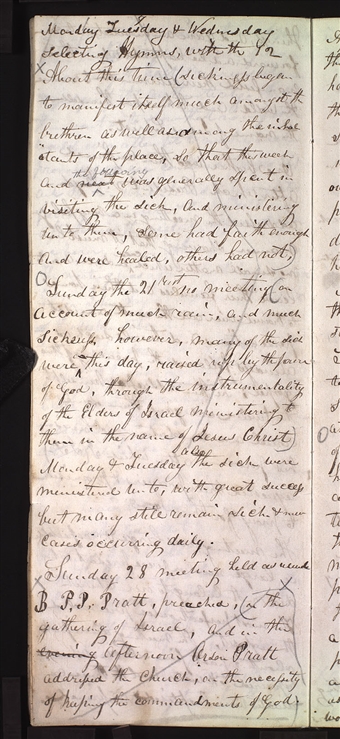 Monday Tuesday & Wednesday
selecting Hymns, with the 
About this time (sickness began
to manifest itself much amongst the
brethren as well as among the inhabi
tants of the place, so that this week
the following
and next was generally spent in
visiting the sick, and ministering
unto them, some had faith enough
and were healed, others had not,
Sunday the 21st no meeting (on
account of much rain, and much
sickness, however, many of the sick
were this day, raised up by the power
of God, through the instrumentality
of the Elders of Israel ministering to
them in the name of Jesus Christ)
also
Monday & Tuesday the sick were
ministered unto, with great success
but many still remain sick & new
cases occurring daily.
Sunday 28 meeting held as usual
B P. P. Pratt, preached, (on the
gathering of Israel, and in the
evening afternoon Orson Pratt
addressed the Church, on the necessity
of keeping the commandments of God.